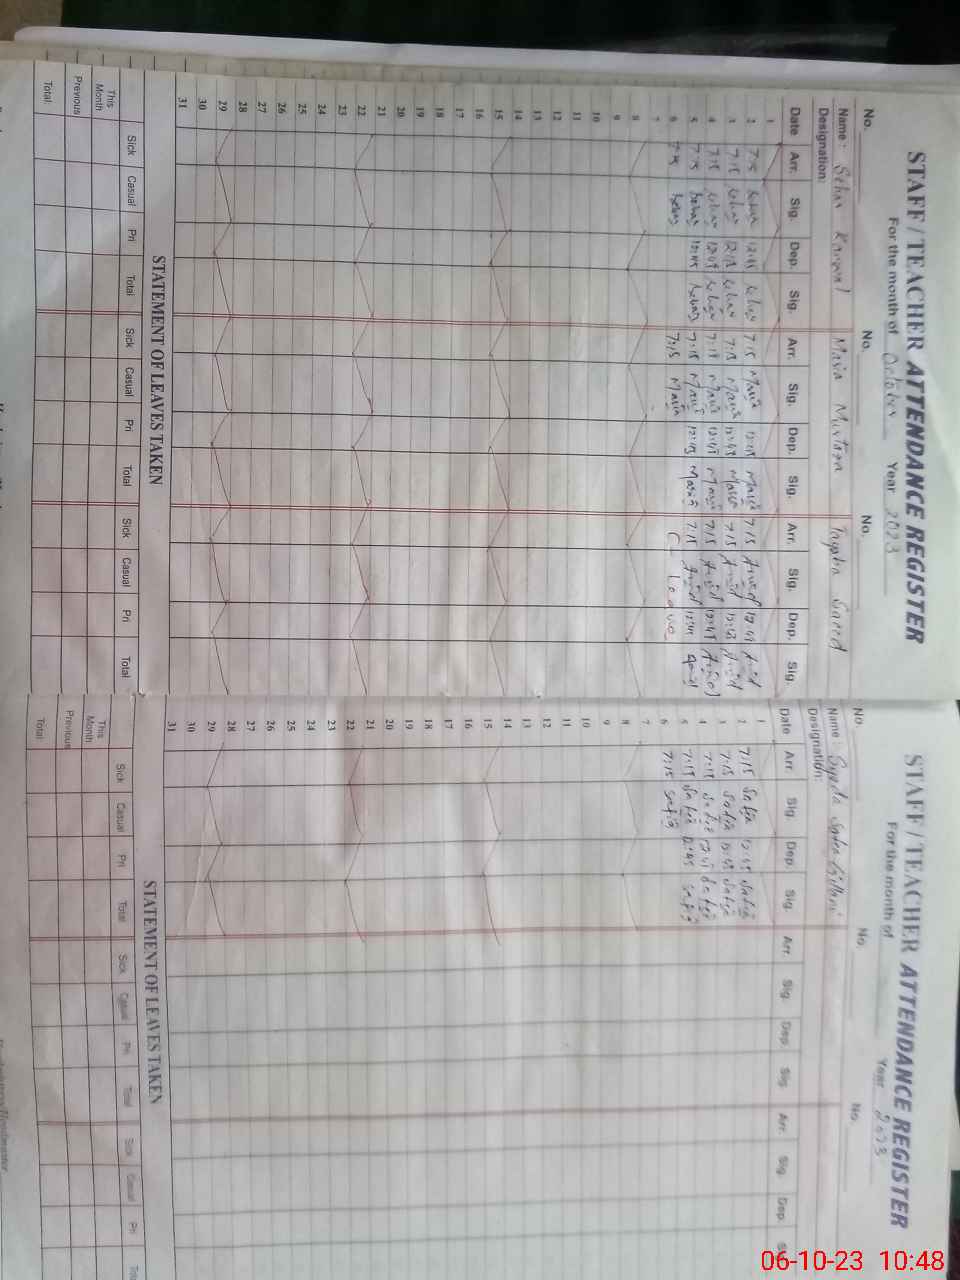 STAFF / TEACHER ATTENDANCE REGISTER
For the month of October Year 2023
No. No. No.
Name: Sehar Maria Murtaza Saeed
Designation:
Date Arr. Sig. Dep. Sig. Arr. Sig. Dep. Sig. Arr. Sig. Dep. Sig.
1
2 7:15 Sehar 12:45 Sehar 7:15 Maria 12:45 Maria 7:15 12:45
3 7:15 Sehar 12:45 Sehar 7:15 Maria 12:45 Maria 7:15 12:45
4 7:15 Sehar 12:45 Sehar 7:15 Maria 12:45 Maria 7:15 12:45
5 7:15 Sehar 12:45 Sehar 7:15 Maria 12:45 Maria 7:15 12:45
6 7:15 Sehar 7:15 Maria C Leave
7
8
9
10
11
12
13
14
15
16
17
18
19
20
21
22
23
24
25
26
27
28
29
30
31
STATEMENT OF LEAVES TAKEN
Sick Casual Pri Total Sick Casual Pri Total Sick Casual Pri Total
This Month
Previous
Total:
STAFF / TEACHER ATTENDANCE REGISTER
For the month of Year 2023
No. No. No.
Name: Syeda Gillani
Designation:
Date Arr. Sig. Dep. Sig. Arr. Sig. Dep. Sig. Arr. Sig. Dep. Sig.
1
2 7:15 12:45
3 7:15 12:45
4 7:15 12:45
5 7:15 12:45
6 7:15
7
8
9
10
11
12
13
14
15
16
17
18
19
20
21
22
23
24
25
26
27
28
29
30
31
STATEMENT OF LEAVES TAKEN
Sick Casual Pri Total Sick Casual Pri Total Sick Casual Pri Total
This Month
Previous
Total:
06-10-23 10:48